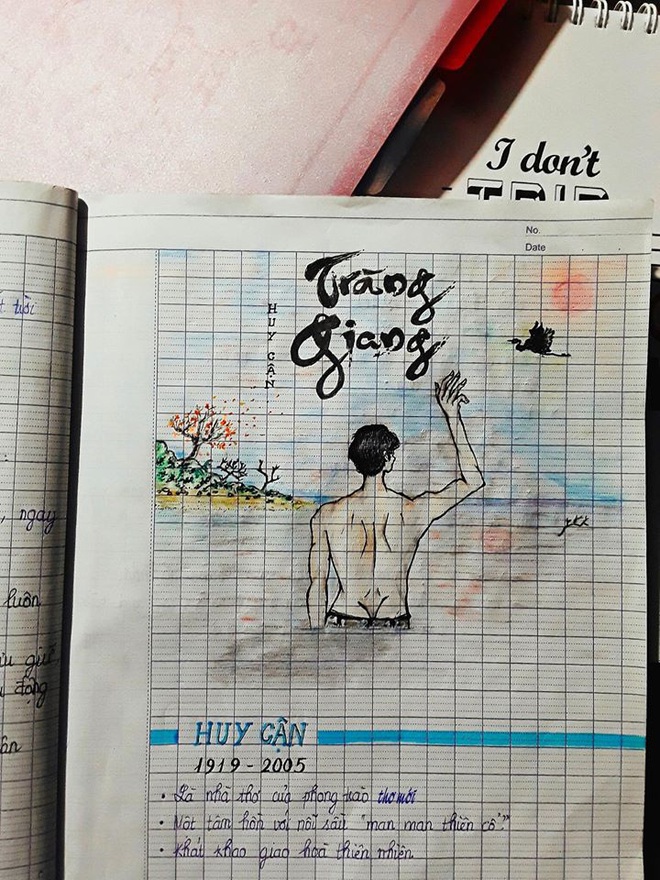 I don't
TRIP
No.
Date
Tràng
Giang
HUY CẬN
t tiời
, ngay
luôn
ưu giữ
đọng
ân
HUY CẬN
1919 - 2005
• Là nhà thơ của phong trào thơ mới
• Một tâm hồn với nỗi sầu "man man thiên cổ"
• Khát khao giao hoà thiên nhiên